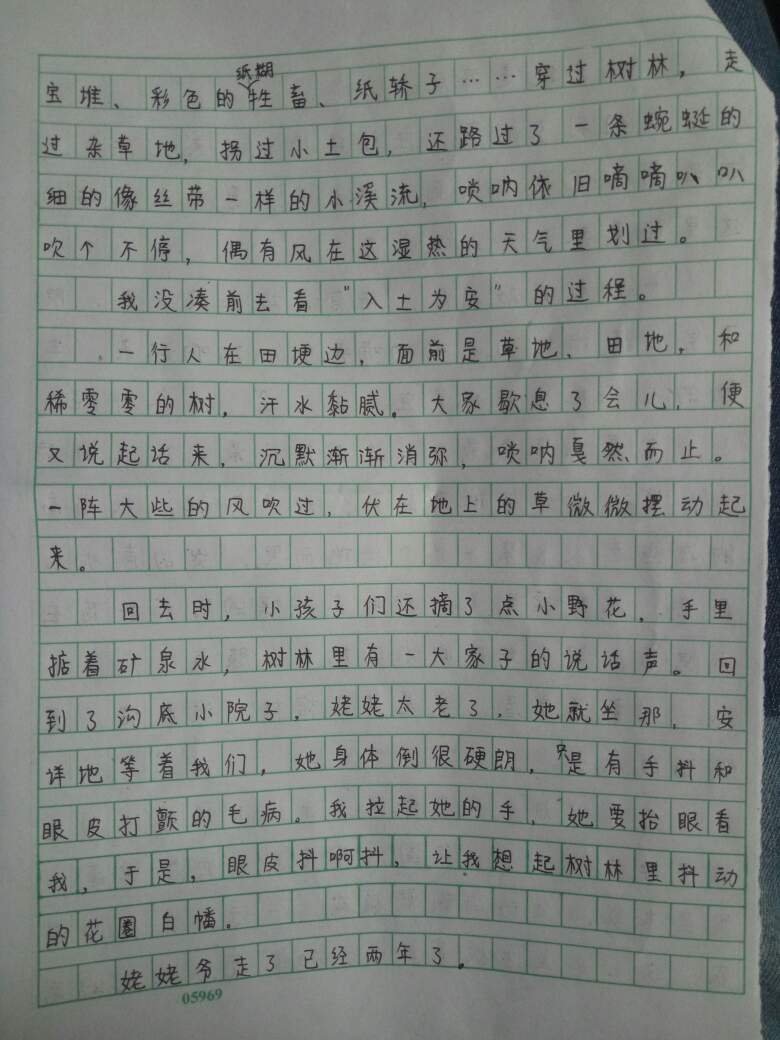 宝堆、彩色的纸糊牲畜、纸轿子……穿过树林，走
过杂草地，拐过小土包，还路过了一条蜿蜒的
细的像丝带一样的小溪流，唢呐依旧嘀嘀叭叭
吹个不停，偶有风在这湿热的天气里划过。
我没凑前去看“入土为安”的过程。
一行人在田埂边，面前是草地、田地，和
稀零零的树，汗水黏腻。大家歇息了会儿，便
又说起话来，沉默渐渐消弥，唢呐戛然而止。
一阵大些的风吹过，伏在地上的草微微摆动起
来。
回去时，小孩子们还摘了点小野花，手里
掂着矿泉水，树林里有一大家子的说话声。回
到了沟底小院子，姥姥太老了，她就坐那，安
详地等着我们，她身体倒很硬朗，只是有手抖和
眼皮打颤的毛病。我拉起她的手，她要抬眼看
我，于是，眼皮抖啊抖，让我想起树林里抖动
的花圈白幡。
姥姥爷走了已经两年了。
05969